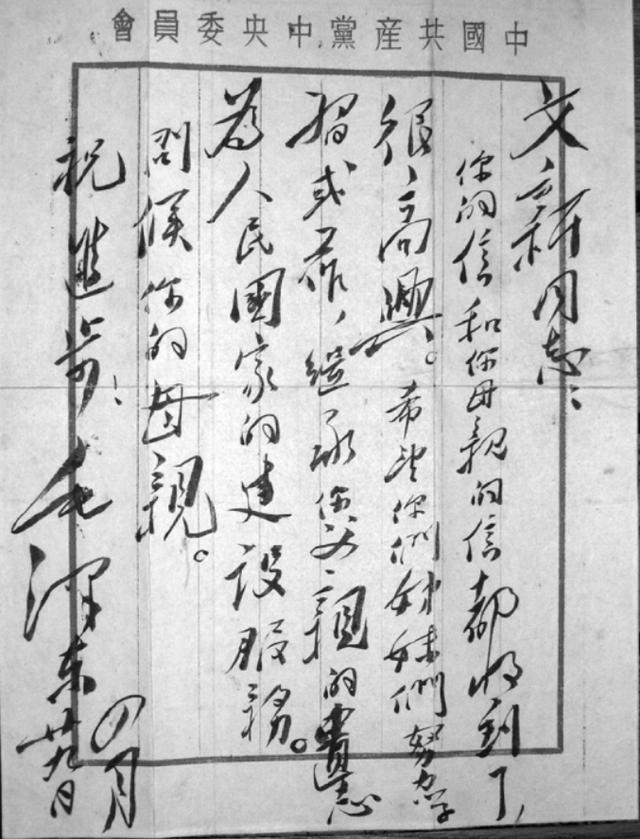 中國共產黨中央委員會
文新同志：
你的信和你母親的信都收到了，
很高興。希望你們姊妹們努力学
習或工作，繼承你父親的遺志
為人民國家的建設服務。
問候你的母親。
祝進步！毛澤东
四月
廿九日